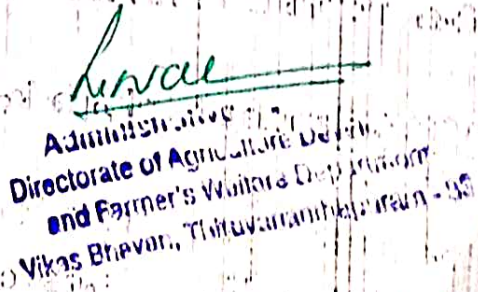 Administrative
Directorate of Agriculture
and Farmer's Welfare Department
Vikas Bhavan, Thiruvananthapuram - 33